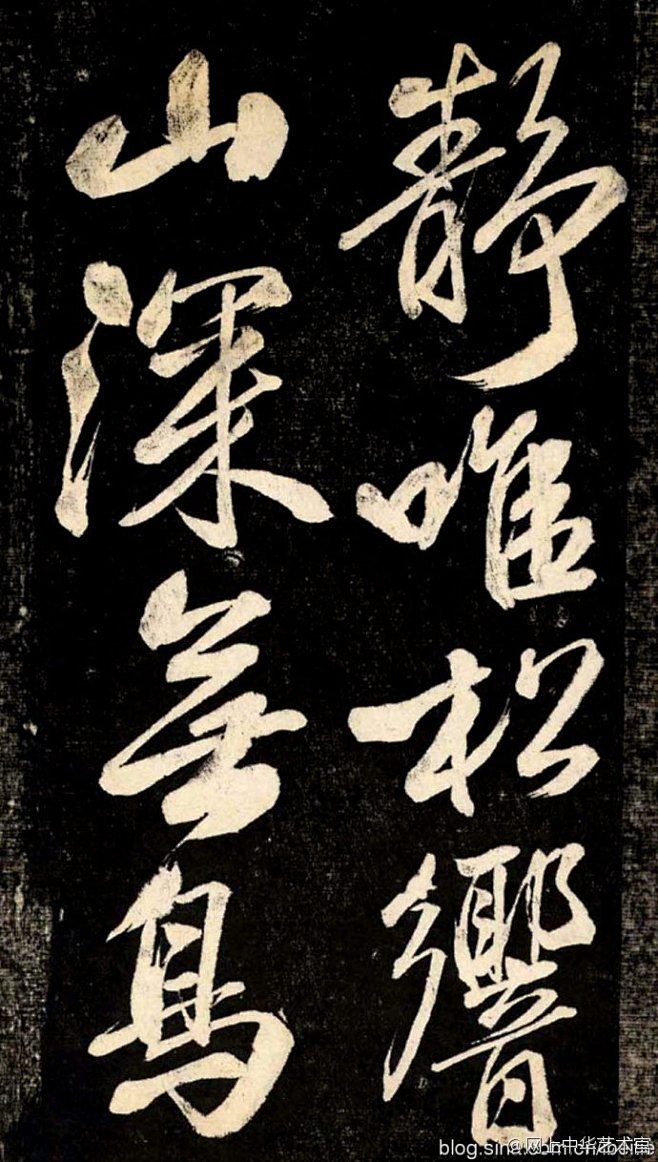 静唯松響
山深無鳥
@网上中华艺术宫
blog.sina.com.cn/beine